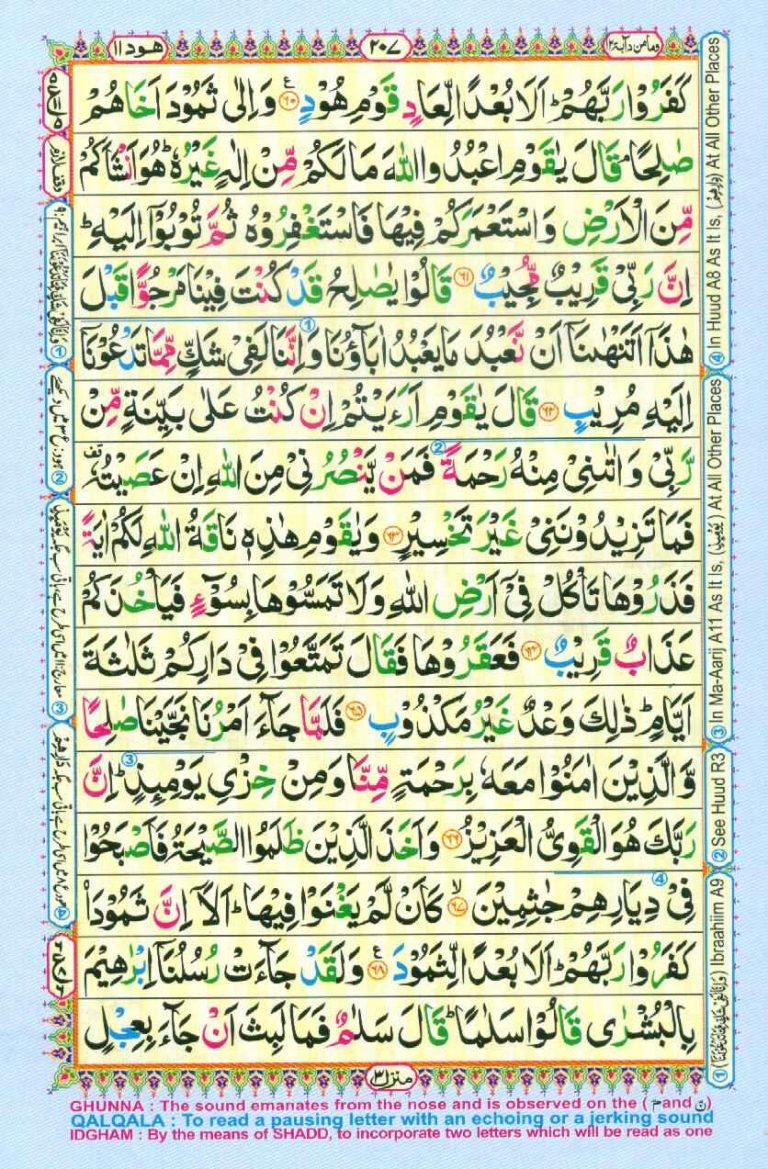 وما من دآبة ١٢
٢٠٧
هود ١١
كَفَرُوْا رَبَّهُمْ ؕ اَلَا بُعْدًا لِّعَادٍ قَوْمِ هُوْدٍ ۟۠ ﴿۶۰﴾ وَ اِلٰى ثَمُوْدَ اَخَاهُمْ
صٰلِحًا ۘ قَالَ يٰقَوْمِ اعْبُدُوا اللّٰهَ مَا لَكُمْ مِّنْ اِلٰهٍ غَيْرُهٗ ؕ هُوَ اَنْشَاَكُمْ
مِّنَ الْاَرْضِ وَ اسْتَعْمَرَكُمْ فِيْهَا فَاسْتَغْفِرُوْهُ ثُمَّ تُوْبُوْۤا اِلَيْهِ ؕ
اِنَّ رَبِّيْ قَرِيْبٌ مُّجِيْبٌ ﴿۶۱﴾ قَالُوْا يٰصٰلِحُ قَدْ كُنْتَ فِيْنَا مَرْجُوًّا قَبْلَ
هٰذَاۤ اَتَنْهٰىنَاۤ اَنْ نَّعْبُدَ مَا يَعْبُدُ اٰبَآؤُنَا وَ اِنَّنَا لَفِيْ شَكٍّ مِّمَّا تَدْعُوْنَاۤ
اِلَيْهِ مُرِيْبٍ ﴿۶۲﴾ قَالَ يٰقَوْمِ اَرَءَيْتُمْ اِنْ كُنْتُ عَلٰى بَيِّنَةٍ مِّنْ
رَّبِّيْ وَ اٰتٰىنِيْ مِنْهُ رَحْمَةً فَمَنْ يَّنْصُرُنِيْ مِنَ اللّٰهِ اِنْ عَصَيْتُهٗ ۫
فَمَا تَزِيْدُوْنَنِيْ غَيْرَ تَخْسِيْرٍ ﴿۶۳﴾ وَ يٰقَوْمِ هٰذِهٖ نَاقَةُ اللّٰهِ لَكُمْ اٰيَةً
فَذَرُوْهَا تَاْكُلْ فِيْۤ اَرْضِ اللّٰهِ وَ لَا تَمَسُّوْهَا بِسُوْٓءٍ فَيَاْخُذَكُمْ
عَذَابٌ قَرِيْبٌ ﴿۶۴﴾ فَعَقَرُوْهَا فَقَالَ تَمَتَّعُوْا فِيْ دَارِكُمْ ثَلٰثَةَ
اَيَّامٍ ؕ ذٰلِكَ وَعْدٌ غَيْرُ مَكْذُوْبٍ ﴿۶۵﴾ فَلَمَّا جَآءَ اَمْرُنَا نَجَّيْنَا صٰلِحًا
وَّ الَّذِيْنَ اٰمَنُوْا مَعَهٗ بِرَحْمَةٍ مِّنَّا وَ مِنْ خِزْيِ يَوْمِئِذٍ ؕ اِنَّ
رَبَّكَ هُوَ الْقَوِيُّ الْعَزِيْزُ ﴿۶۶﴾ وَ اَخَذَ الَّذِيْنَ ظَلَمُوا الصَّيْحَةُ فَاَصْبَحُوْا
فِيْ دِيَارِهِمْ جٰثِمِيْنَ ۙ ﴿۶۷﴾ كَاَنْ لَّمْ يَغْنَوْا فِيْهَا ؕ اَلَاۤ اِنَّ ثَمُوْدَاۡ
كَفَرُوْا رَبَّهُمْ ؕ اَلَا بُعْدًا لِّثَمُوْدَ ۟۠ ﴿۶۸﴾ وَ لَقَدْ جَآءَتْ رُسُلُنَاۤ اِبْرٰهِيْمَ
بِالْبُشْرٰى قَالُوْا سَلٰمًا ؕ قَالَ سَلٰمٌ فَمَا لَبِثَ اَنْ جَآءَ بِعِجْلٍ
منزل ٣
① Ibraahiim A9
② See Huud R3
③ In Ma-Aarij A11 As It Is, (يَوْمَئِذٍ) At All Other Places
④ In Huud A8 As It Is, At All Other Places
وقف لازم
GHUNNA : The sound emanates from the nose and is observed on the (م and ن)
QALQALA : To read a pausing letter with an echoing or a jerking sound
IDGHAM : By the means of SHADD, to incorporate two letters which will be read as one